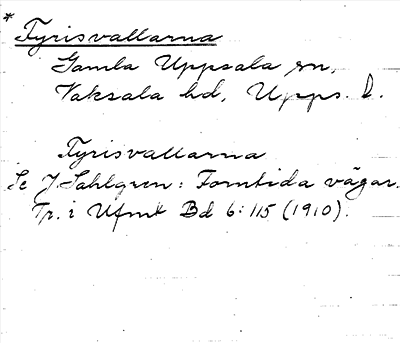 * Fyrisvallarna
Gamla Uppsala sn,
Vaksala hd, Upps. l.
Fyrisvallarna
Se J. Sahlgren: Forntida vägar.
Tr. i Ufmt Bd 6: 115 (1910).